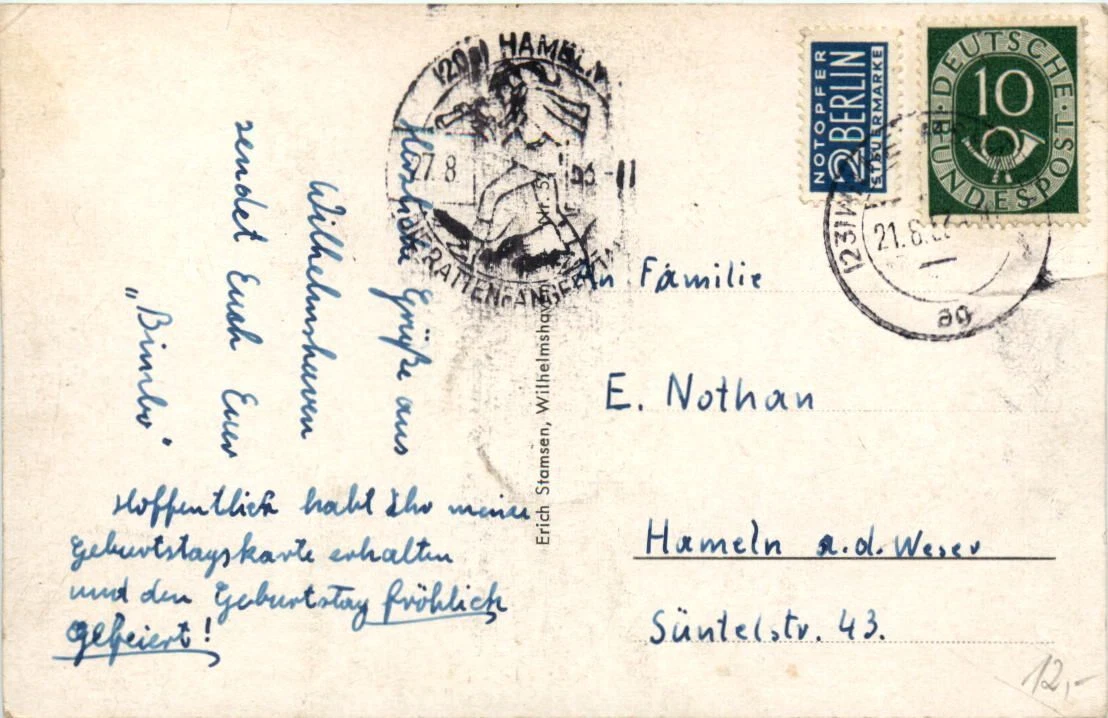 Herzliche Grüße aus
Wilhelmshaven
sendet Euch Euer
„Bimbo“
Hoffentlich habt Ihr meine
Geburtstagskarte erhalten
und den Geburtstag fröhlich
gefeiert!
(20a) HAMELN
27.8
-11
RATTENFÄNGER
Erich Stamsen, Wilhelmshaven
NOTOPFER
2 BERLIN
STEUERMARKE
DEUTSCHE
BUNDESPOST
10
(23)
21.8.
ag
An Familie
E. Nothan
Hameln a.d. Weser
Süntelstr. 43.
12,-